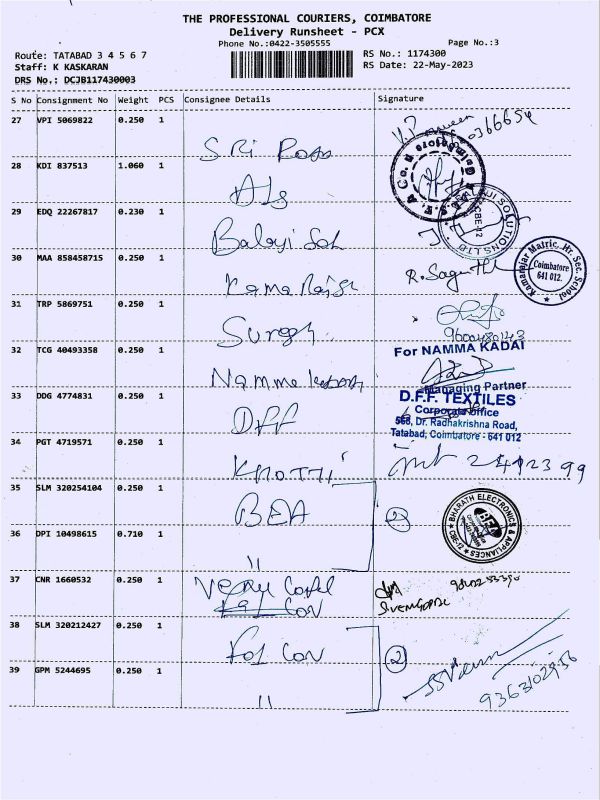 THE PROFESSIONAL COURIERS, COIMBATORE
Delivery Runsheet - PCX
Phone No.:0422-3505555 Page No.:3
Route: TATABAD 3 4 5 6 7 RS No.: 1174300
Staff: K KASKARAN RS Date: 22-May-2023
DRS No.: DCJB117430003
S No Consignment No Weight PCS Consignee Details Signature
27 VPI 5069822 0.250 1 SRi
28 KDI 837513 1.060 1
29 EDQ 22267817 0.230 1 Balaji
30 MAA 858458715 0.250 1
Kamarajar Matric. Hr. Sec. School
Coimbatore
641 012
31 TRP 5869751 0.250 1 Suresh
9600480143
32 TCG 40493358 0.250 1 Namma
For NAMMA KADAI
Managing Partner
33 DDG 4774831 0.250 1 DFF
D.F.F. TEXTILES
Corporate Office
568, Dr. Radhakrishna Road,
Tatabad, Coimbatore - 641 012
34 PGT 4719571 0.250 1
35 SLM 320254104 0.250 1 BEA 2
BHARATH ELECTRONICS & APPLIANCES
BEA
36 DPI 10498615 0.710 1 "
37 CNR 1660532 0.250 1
38 SLM 320212427 0.250 1 2
39 GPM 5244695 0.250 1 "
9363102956